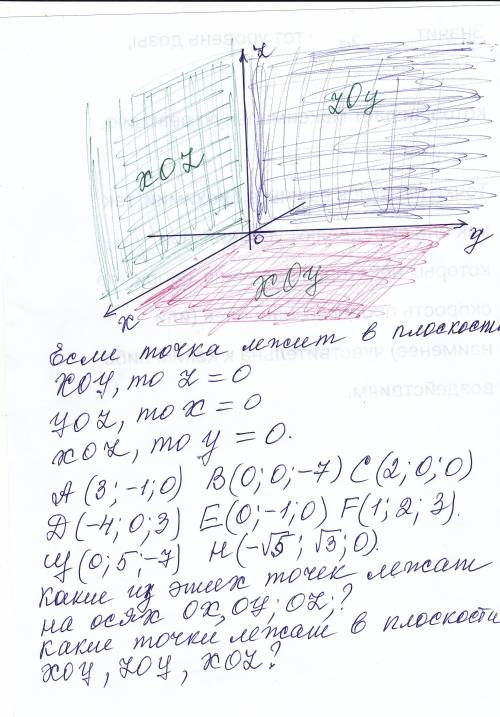 z
zOy
xOz
O
y
xOy
x
Если точка лежит в плоскости
XOY, то z = 0
yOz, то x = 0
xOz, то y = 0.
A (3; -1; 0) B(0; 0; -7) C(2; 0; 0)
D(-4; 0; 3) E(0; -1; 0) F(1; 2; 3).
(0; 5; -7) H(-√5; √3; 0).
Какие из этих точек лежат
на осях OX, OY; OZ; ?
Какие точки лежат в плоскости
XOY, ZOY, XOZ?
значит
- тот уровень дозы,
которы
скорость
наименее) чувствительна к
воздействиям.